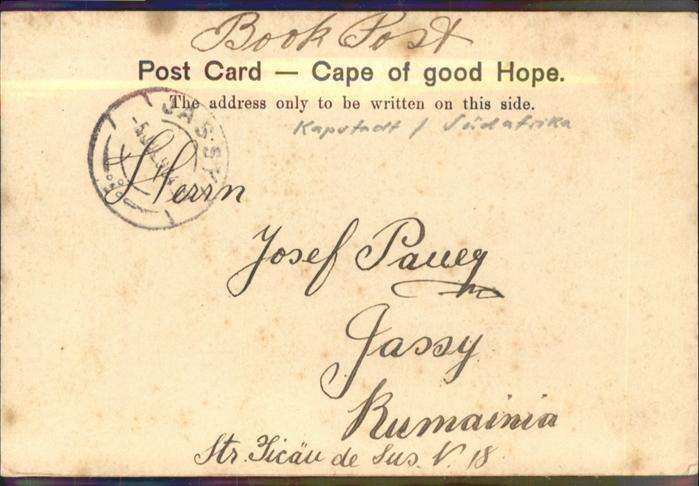 Book Post
Post Card — Cape of good Hope.
The address only to be written on this side.
Kapstadt / Südafrika
JASSY
Herrn
Josef Paueq
Jassy
Rumainia
Str. Ticäu de Sus. N. 18